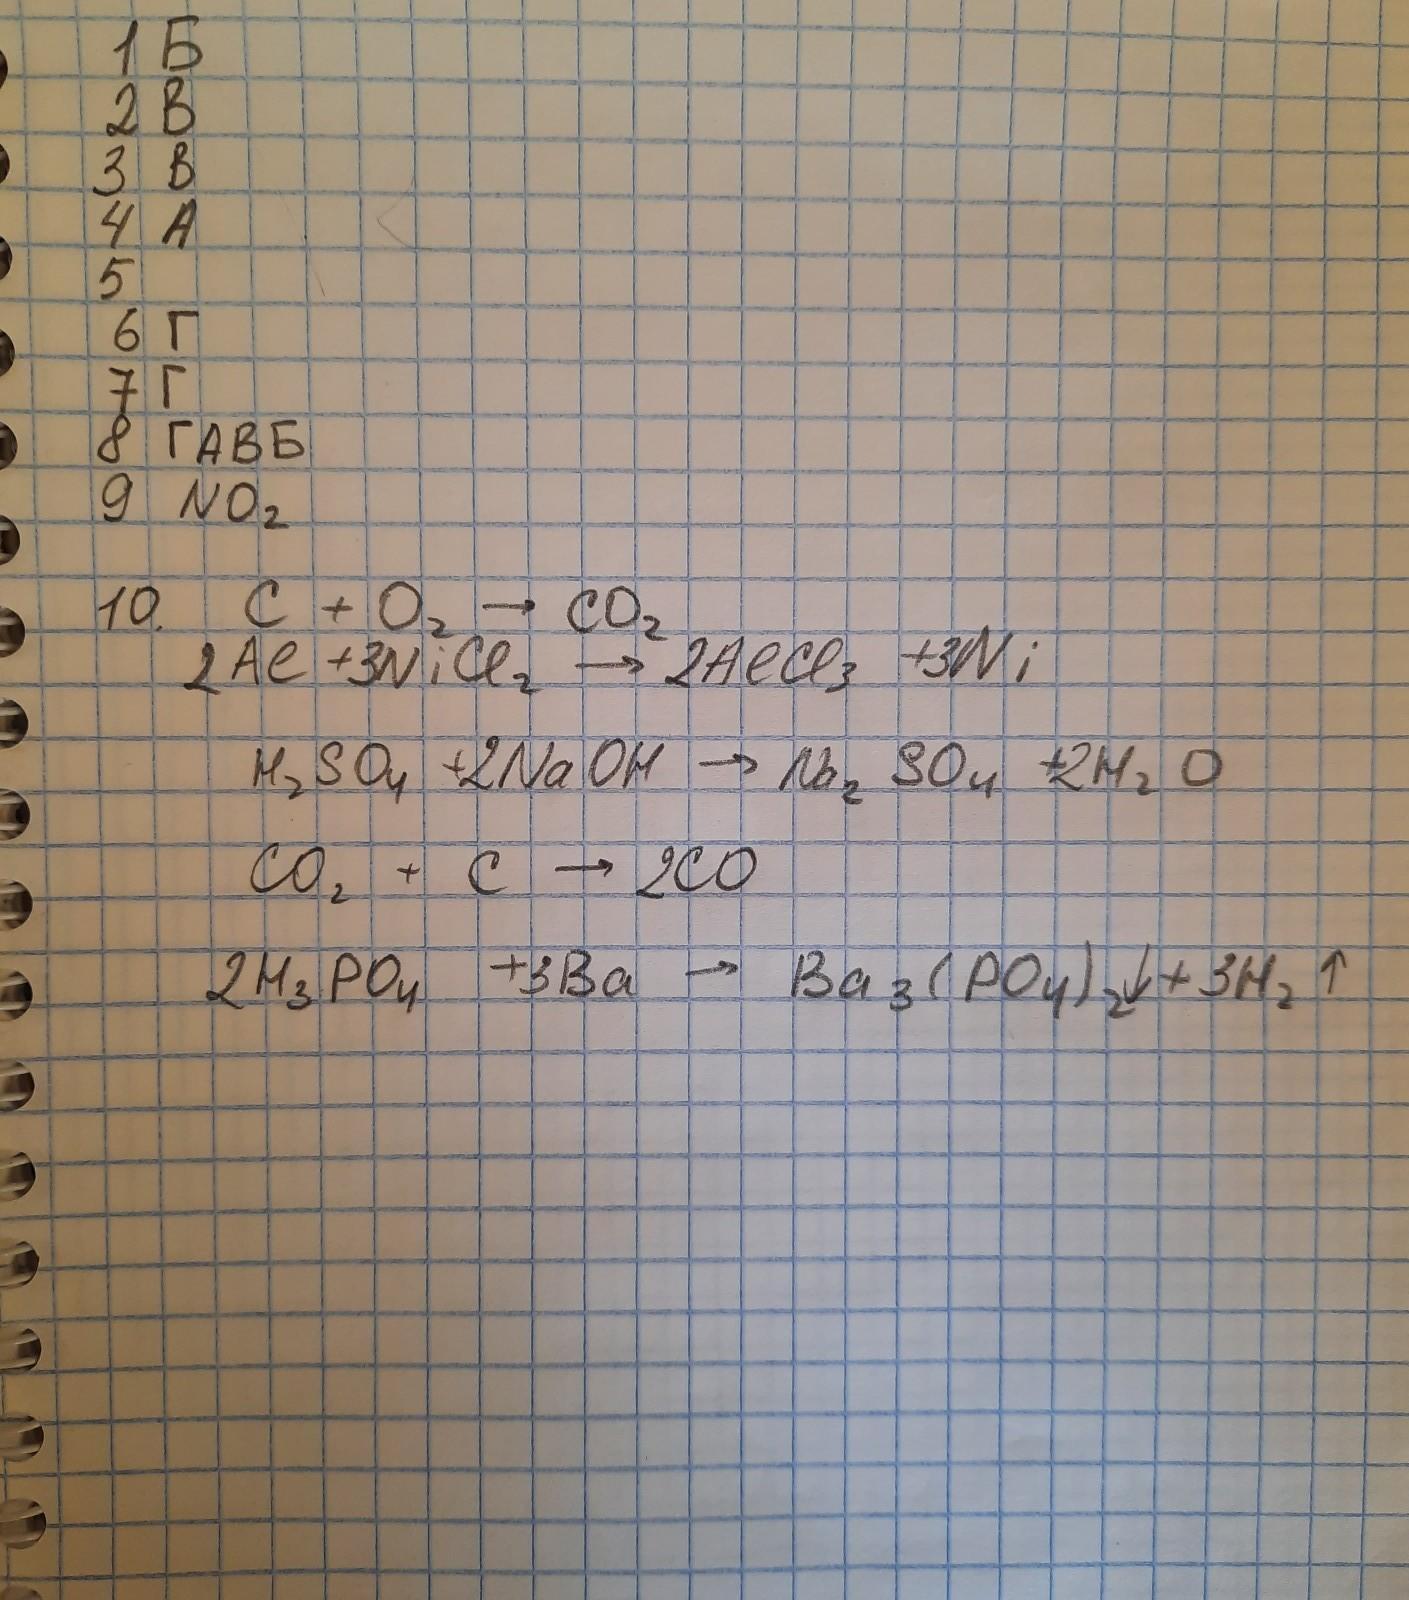 1 Б
2 В
3 В
4 А
5
6 Г
7 Г
8 ГАВБ
9 NO₂
10. C + O₂ → CO₂
2Al +3NiCl₂ → 2AlCl₃ +3Ni
H₂SO₄ +2NaOH → Na₂SO₄ +2H₂O
CO₂ + C → 2CO
2H₃PO₄ +3Ba → Ba₃(PO₄)₂↓ + 3H₂ ↑